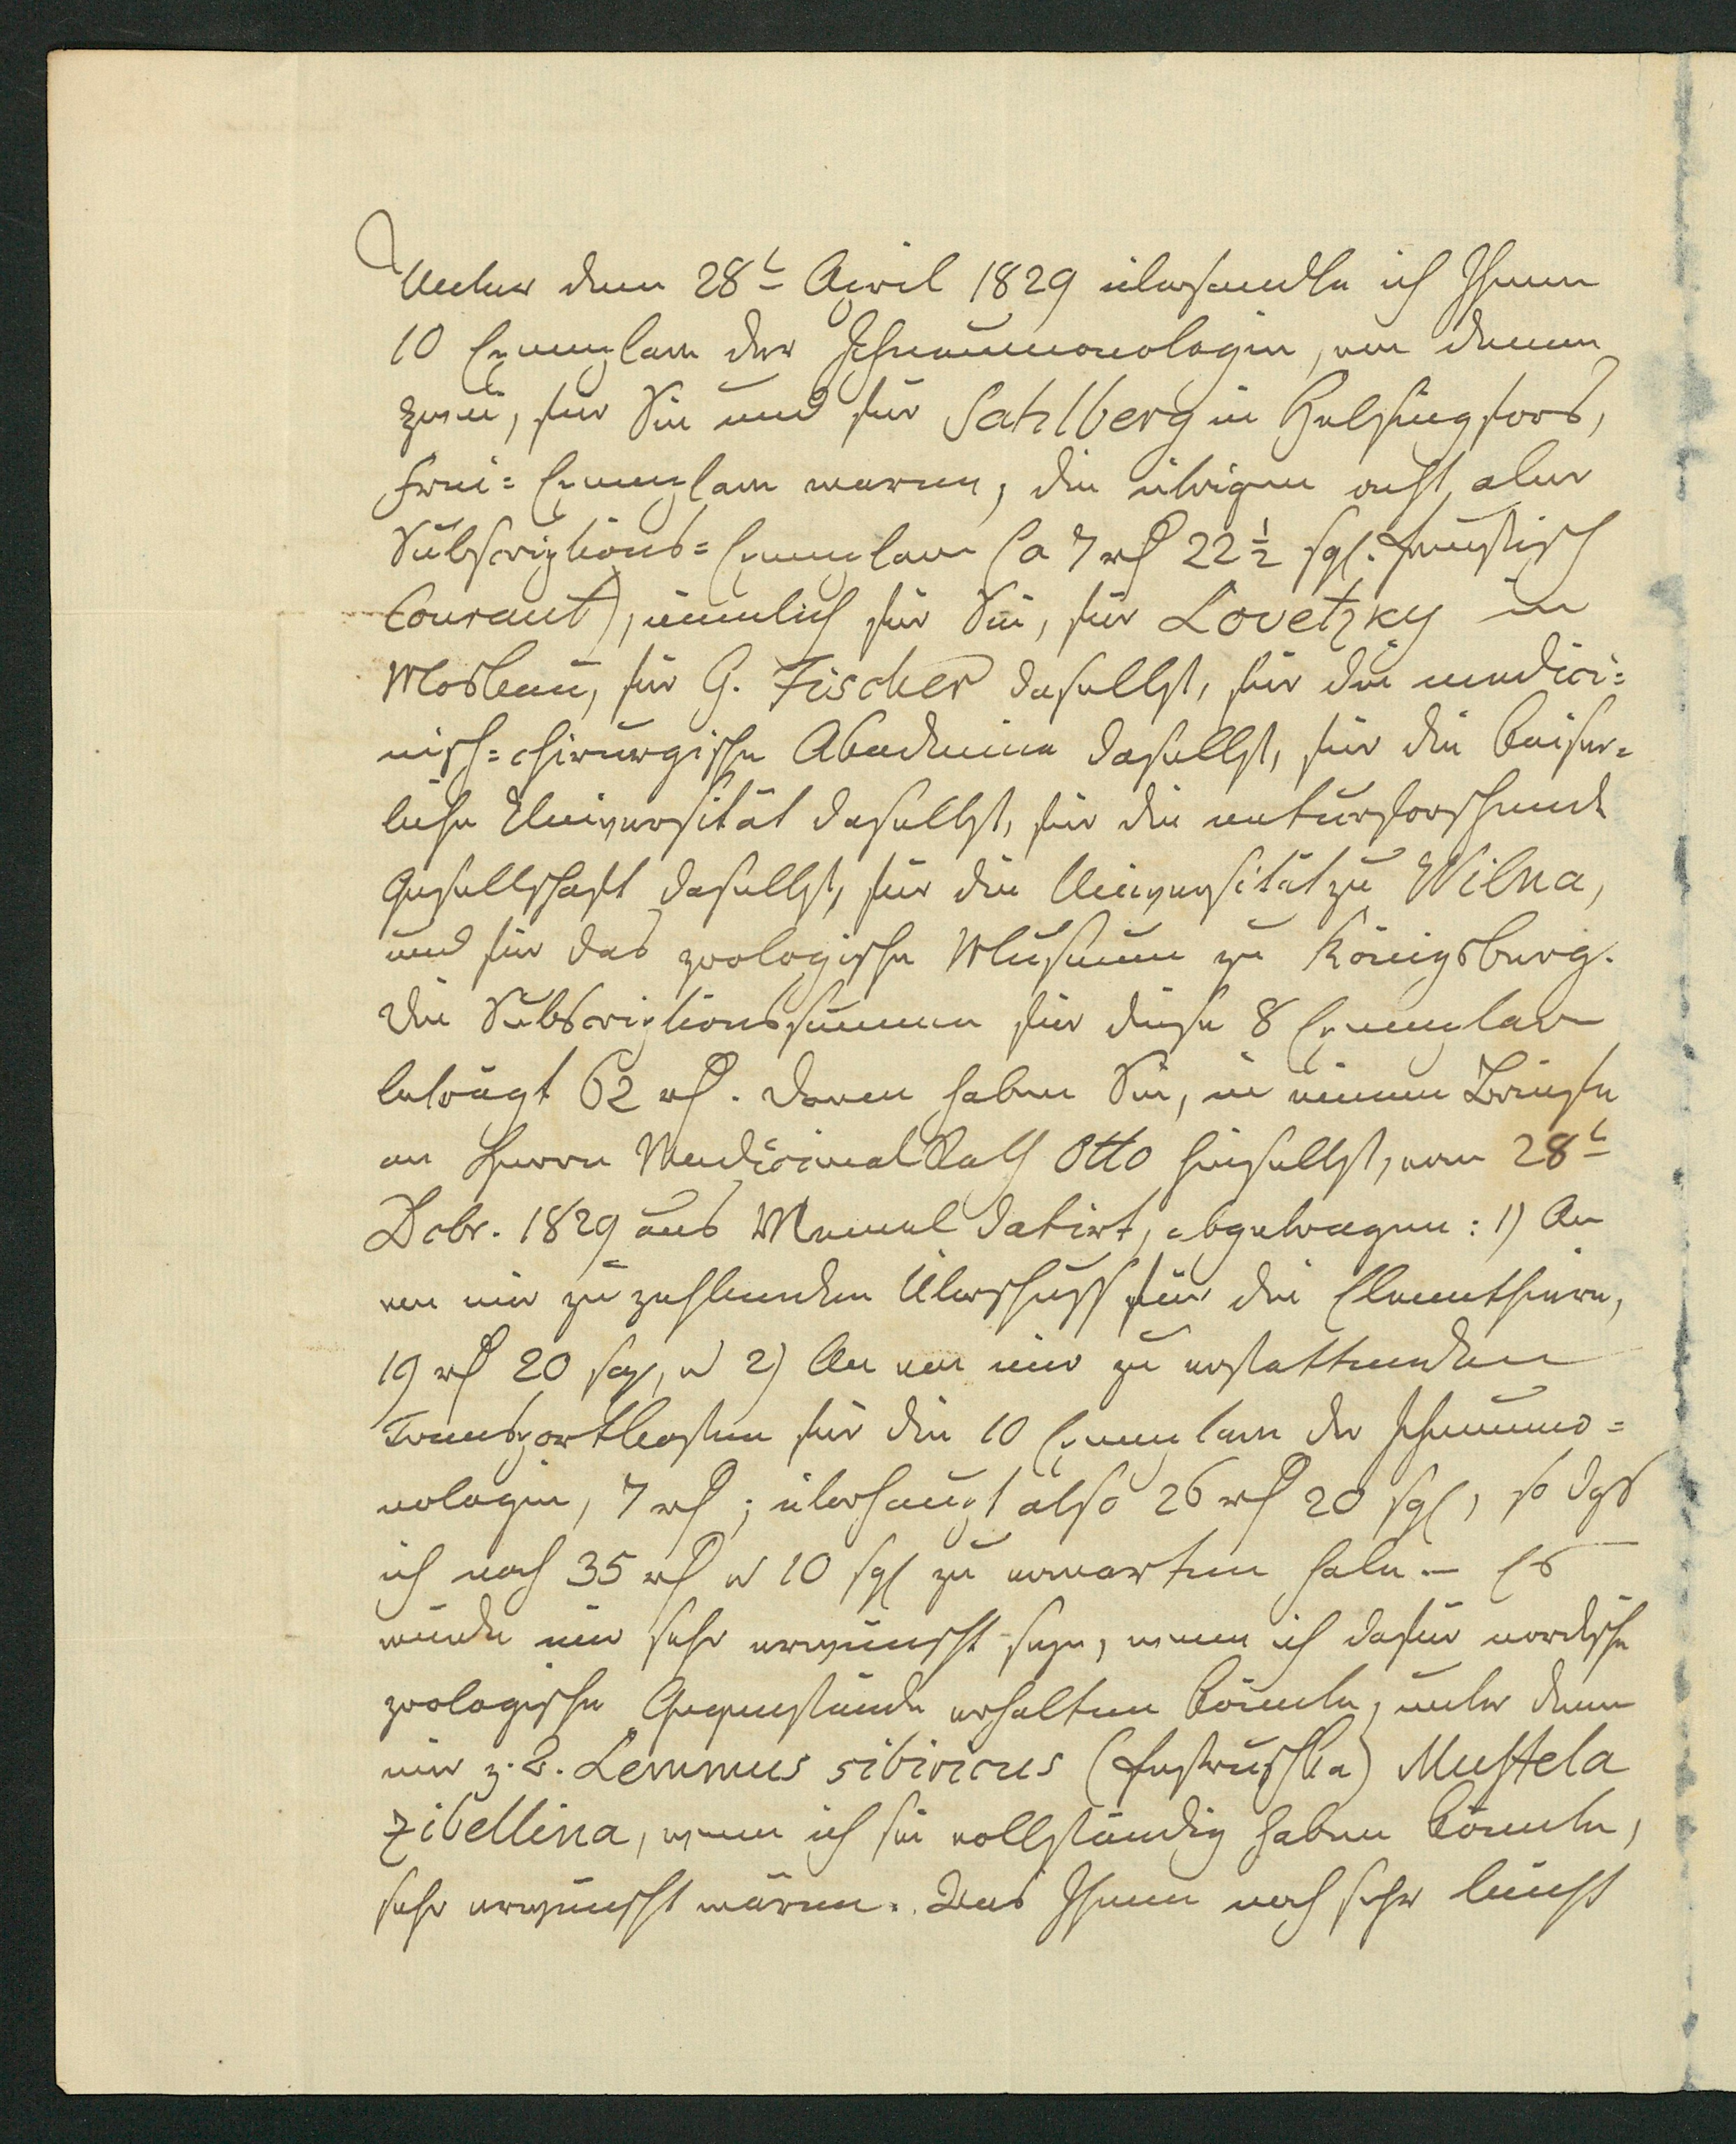 Unter dem 28t April 1829 übersandte ich Ihnen
10 Exemplare der Ichneumonologie, von denen
zwei, für Sie und für Sahlberg in Helsingfors,
Frei=Exemplare waren, die übrigen acht aber
Subscriptions=Exemplare (a 7 rf 22½ sgl. preußisch
Courant), nämlich für Sie, für Lovetzky in
Moskau, für G. Fischer daselbst, für die medici=
nisch=chirurgische Akademie daselbst, für die kaiser=
liche Universität daselbst, für die naturforschende
Gesellschaft daselbst, für die Universität zu Wilna,
und für das zoologische Museum zu Königsberg.
Die Subscriptionssumme für diese 8 Exemplare
beträgt 62 rf. Davon haben Sie, in einem Briefe
an Herrn MedicinalRath Otto hieselbst, vom 28t
Dcbr. 1829 aus Memel datirt, abgetragen: 1) An
von mir zu zahlenden Überschuß für die Elennthiere,
19 rf 20 sgl, u 2) An von mir zu erstattenden
Transportkosten für die 10 Exemplare der Ichneumo=
nologie, 7 rf; überhaupt also 26 rf 20 sgl, so daß
ich noch 35 rf u 10 sgl zu erwarten habe. – Es
würde mir sehr erwünscht seyn, wenn ich dafür nordische
zoologische Gegenstände erhalten könnte, unter denen
mir z. B. Lemmus sibiricus (Pestruschka) Mustela
Zibellina, wenn ich sie vollständig haben könnte,
sehr erwünscht wären. Das Ihnen noch sehr leicht